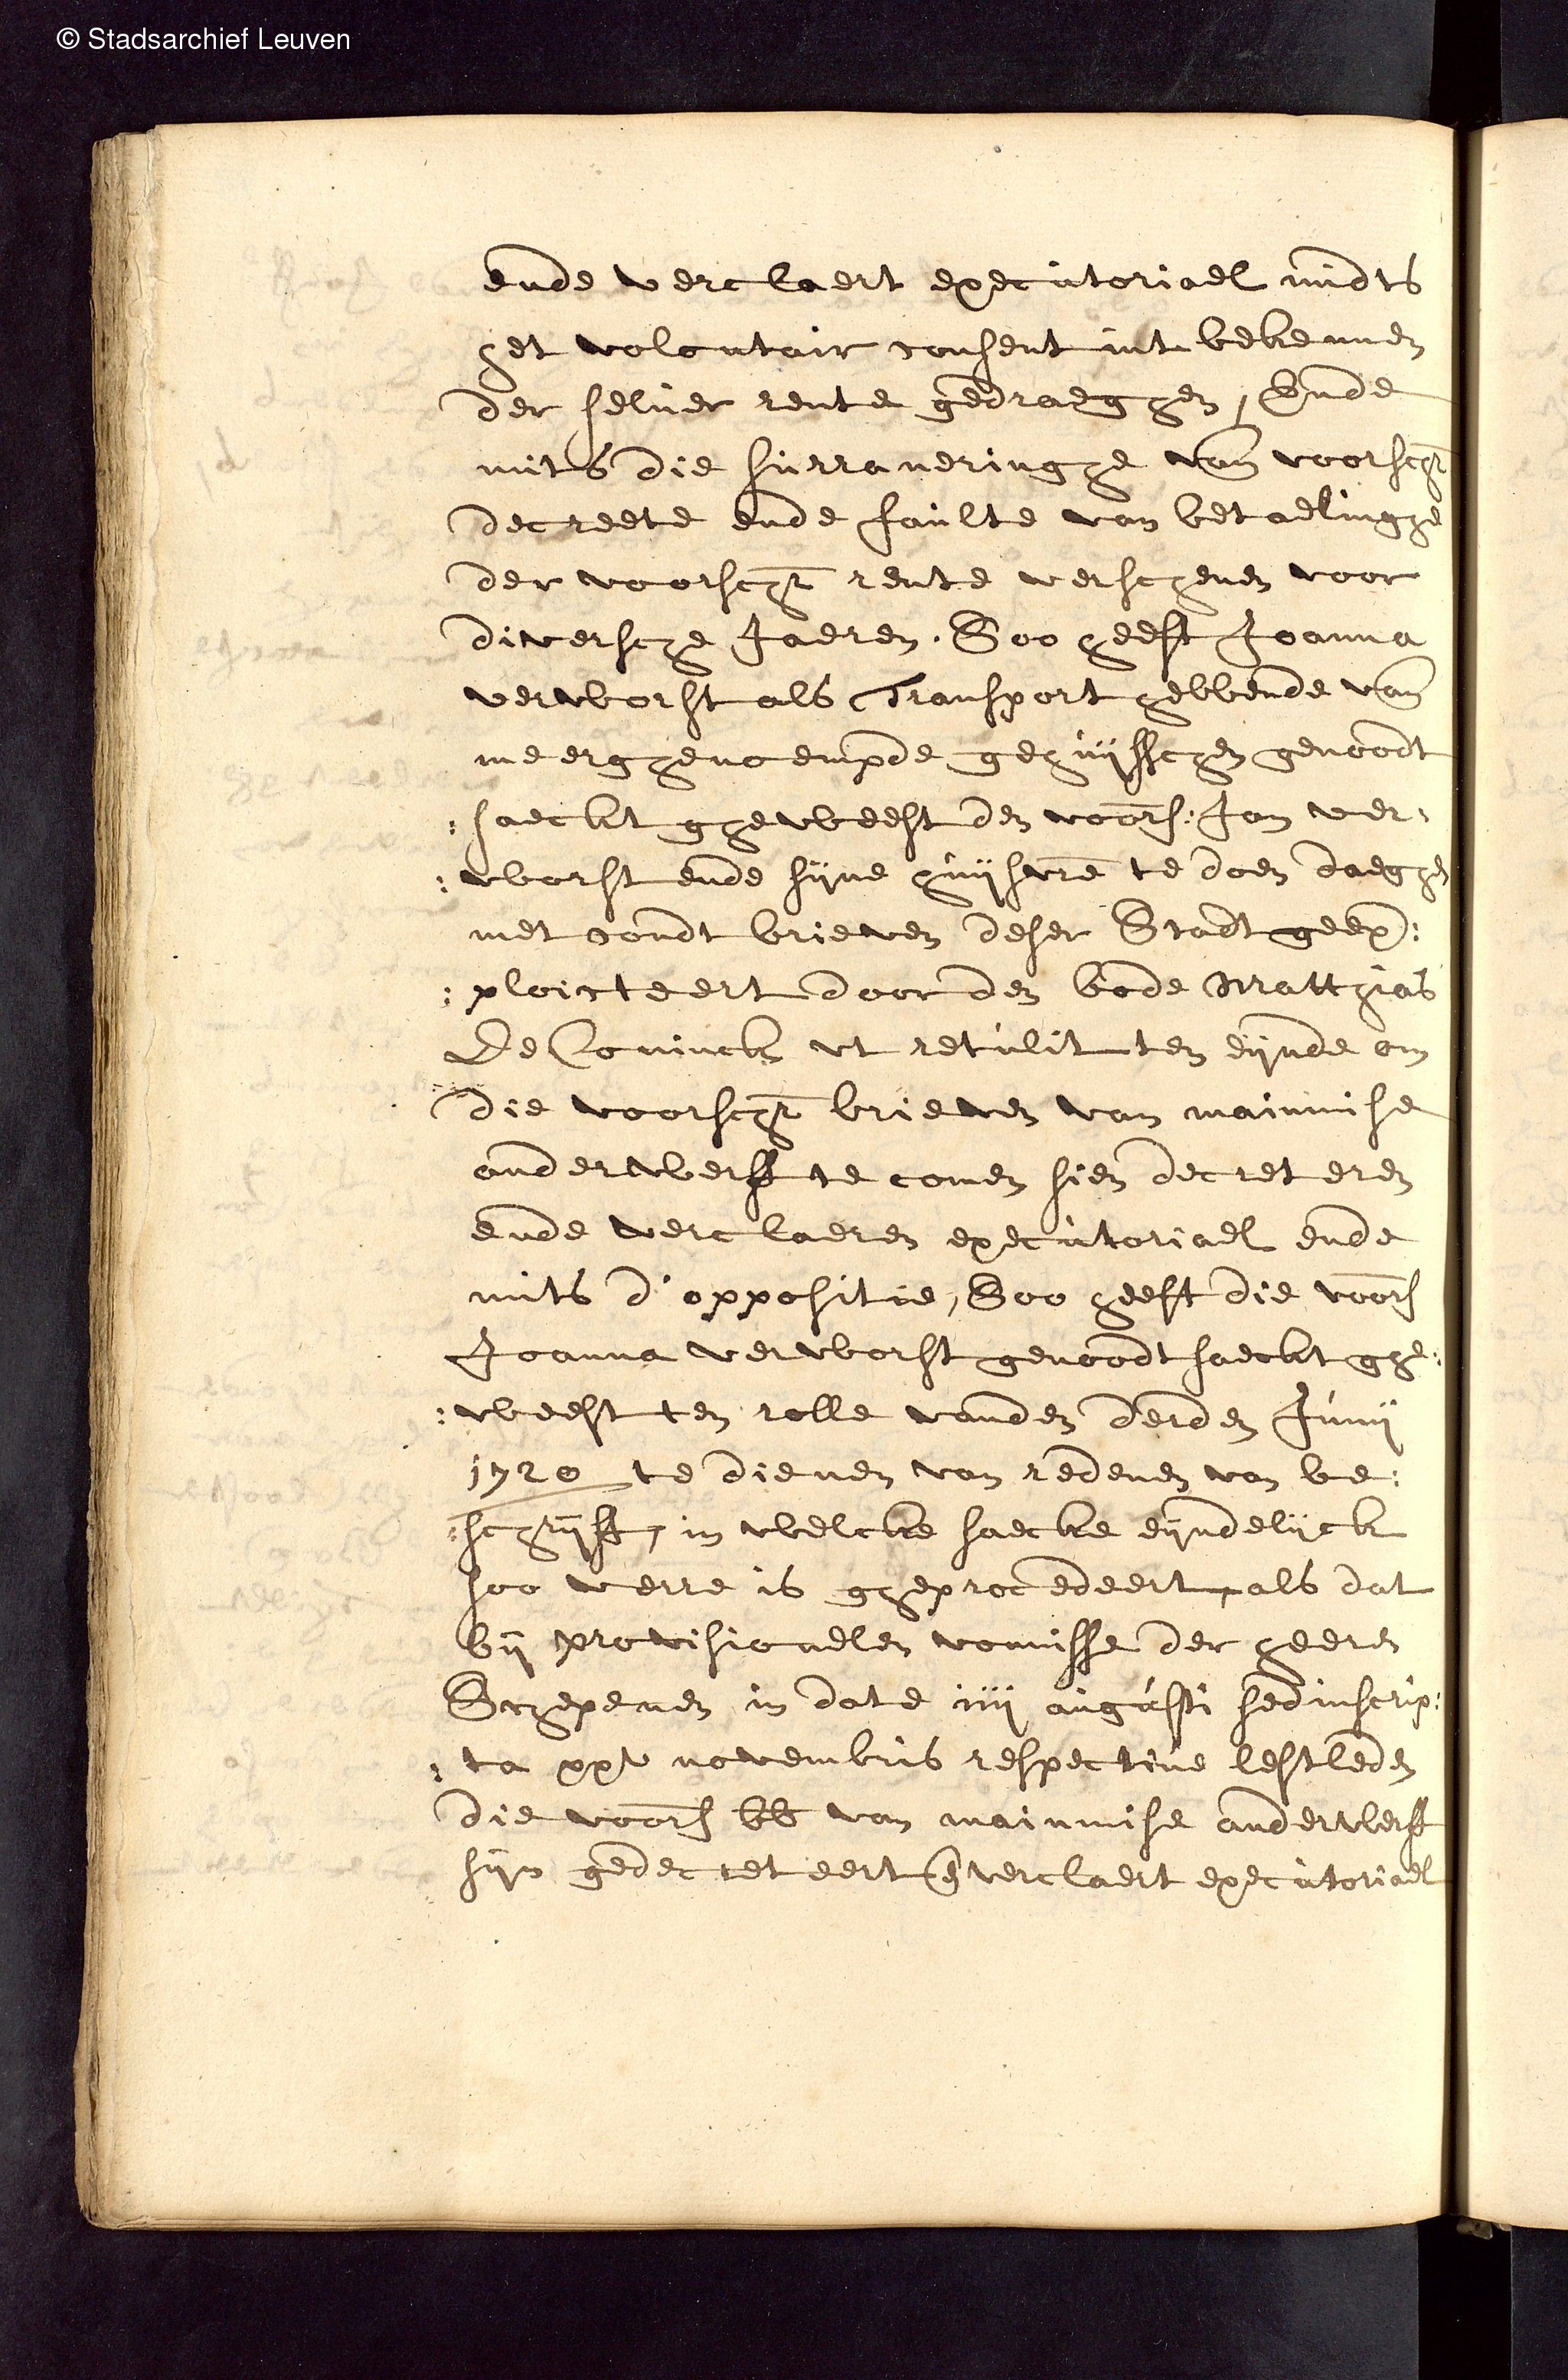 © Stadsarchief Leuven
ende verclaert executoriael midts
het volontair consent int bekennen
der selver rente gedraeghen, Ende
mits die surraneringhe van voorschr
decreete ende faulte van betaelinghe
der voorschr rente verschenen voor
diversche Jaeren. Soo heeft Joanna
verworst als Transport hebbende van
meerghenoempde gehuijsschen genoodt
:saeckt gheweest den voors: Jan ver:
:worst ende sijne huijsvre te doen daeghen
met condt brieven deser Stadt geex:
:ploicteert door den bode Matthias
De Coninck ut retulit ten eijnde om
die voorschr brieven van mainmise
anderwerff te comen sien decreteren
ende verclaeren executoriael ende
mits d'oppositie, Soo heeft die voors
Joanna verworst genoodtsaeckt ghe:
:weest ten rolle vanden derden Junij
1720 te dienen van redenen van be:
:schrijff, in welcke saecke eijndelijck
soo verre is gheprocedeert, als dat
bij provisioneelen vonnisse der heeren
Schepenen in date iiij augusti sedinscrip:
:ta xxv novembris respective lestleden
die voors bb van mainmise anderwerff
sijn gedecreteert en verclaert executoriael